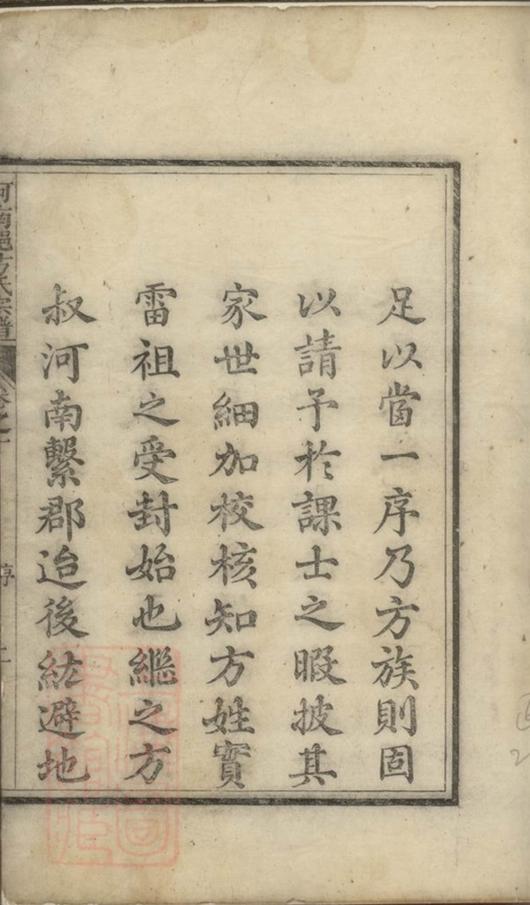 足以當一序乃方族則固
以請予於課士之暇披其
家世細加校核知方姓實
雷祖之受封始也繼之方
叔河南繫郡迨後紘避地
河南邑方氏宗譜
序
二